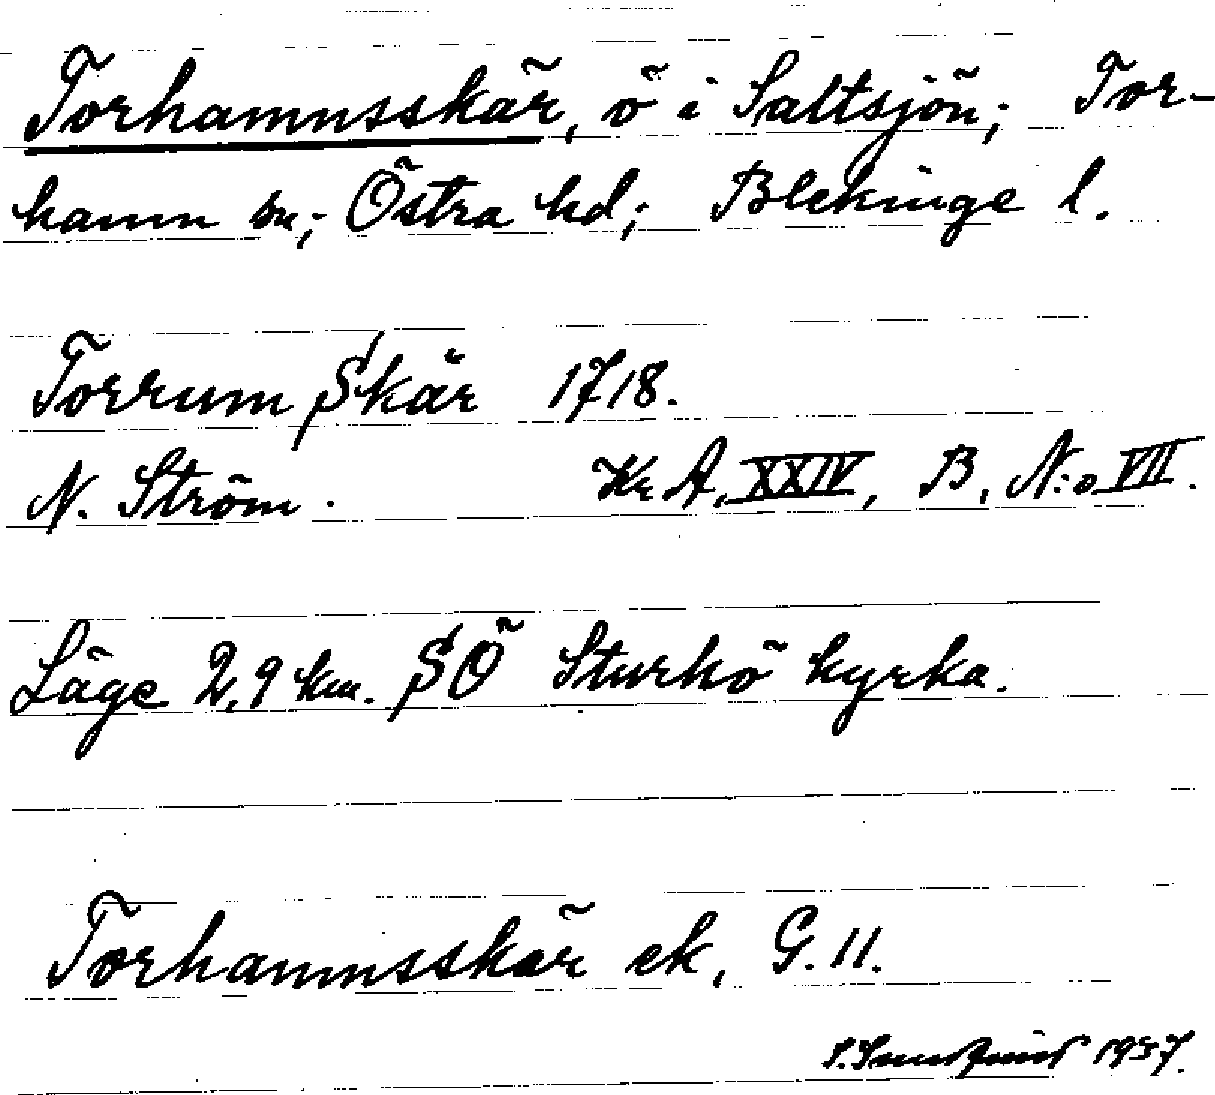 Torhamnsskär, ö i Saltsjön; Tor-
hamn sn; Östra hd; Blekinge l.
Torrum Skär 1718.
N. Ström. Kr A, XXIV, B, N:o VII.
Läge 2,9 km. SÖ Sturkö kyrka.
Torhamnsskär ek, G. 11.
1937.